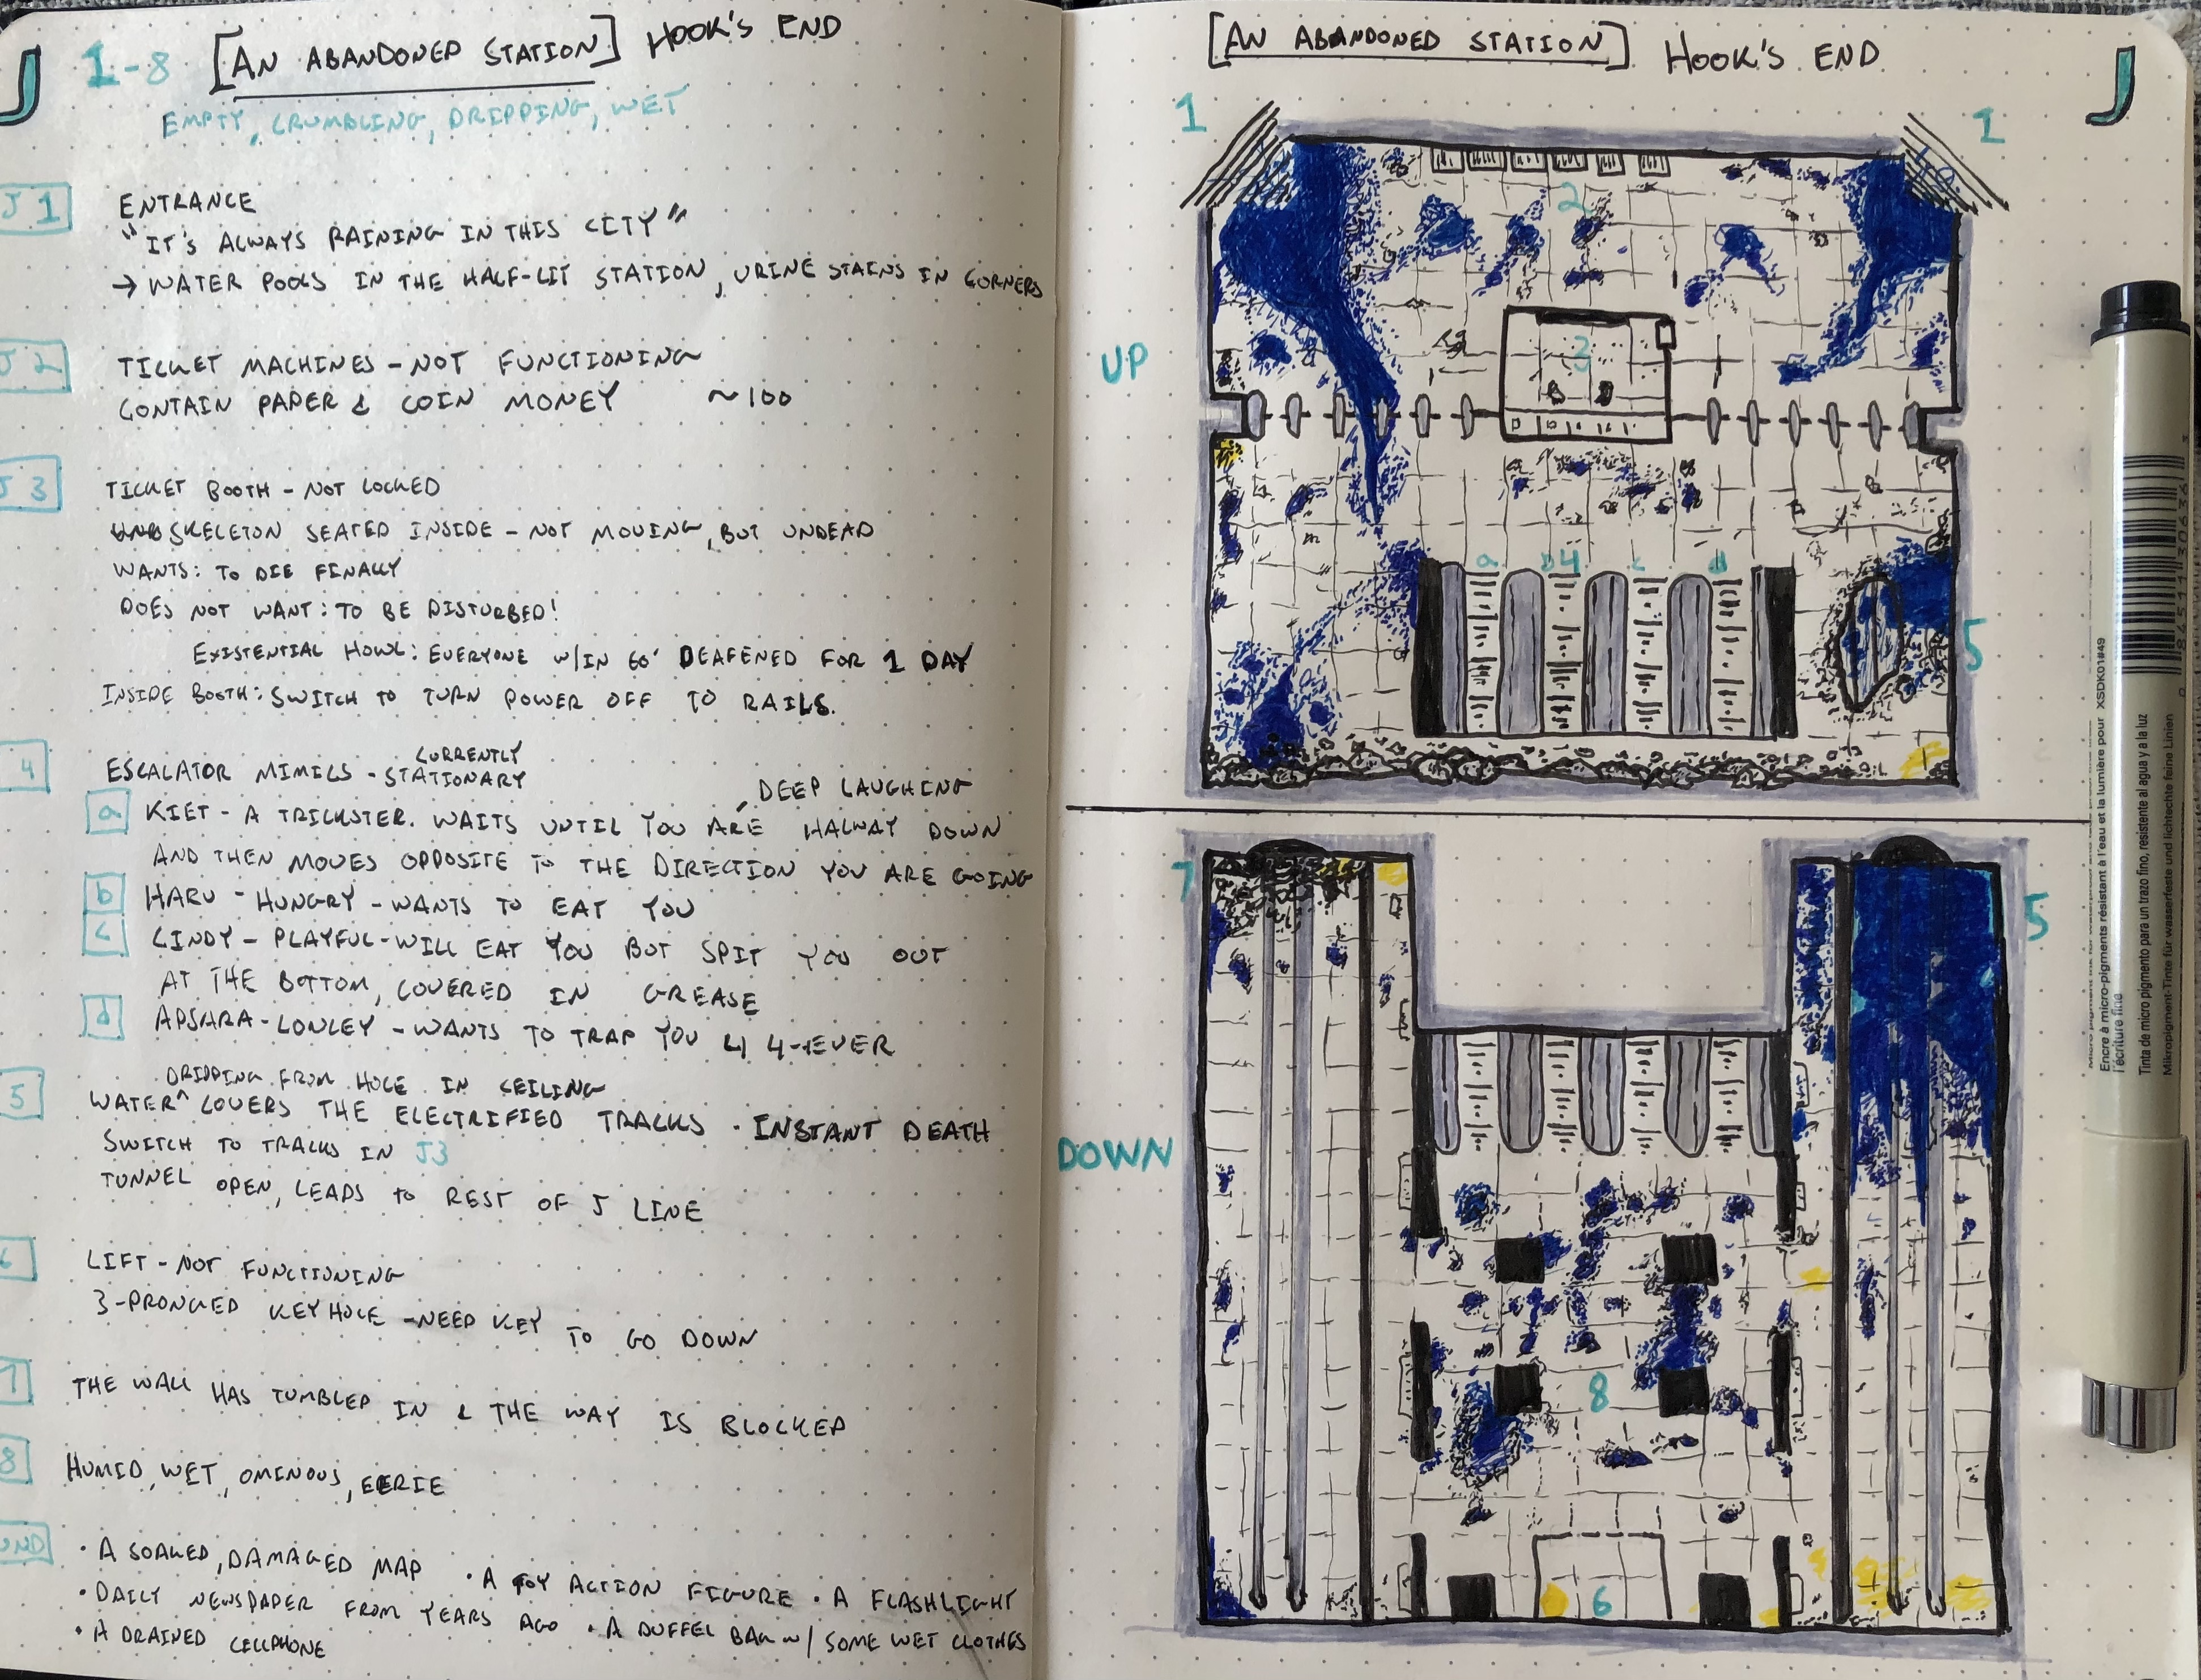 J
1-8 [AN ABANDONED STATION] HOOK'S END
EMPTY, CRUMBLING, DRIPPING, WET
J1
ENTRANCE
"IT'S ALWAYS RAINING IN THIS CITY"
→ WATER POOLS IN THE HALF-LIT STATION, URINE STAINS IN CORNERS
J2
TICKET MACHINES - NOT FUNCTIONING
CONTAIN PAPER & COIN MONEY ~100
J3
TICKET BOOTH - NOT LOCKED
SKELETON SEATED INSIDE - NOT MOVING, BUT UNDEAD
WANTS: TO DIE FINALLY
DOES NOT WANT: TO BE DISTURBED!
EXISTENTIAL HOWL: EVERYONE W/IN 60' DEAFENED FOR 1 DAY
INSIDE BOOTH: SWITCH TO TURN POWER OFF TO RAILS.
4
CURRENTLY
ESCALATOR MIMICS - STATIONARY
DEEP LAUGHING
a KIET - A TRICKSTER. WAITS UNTIL YOU ARE HALWAY DOWN
AND THEN MOVES OPPOSITE TO THE DIRECTION YOU ARE GOING
b HARU - HUNGRY - WANTS TO EAT YOU
c CINDY - PLAYFUL - WILL EAT YOU BUT SPIT YOU OUT
AT THE BOTTOM, COVERED IN GREASE
d APSARA - LONLEY - WANTS TO TRAP YOU 4-EVER
5
DRIPPING FROM HOLE IN CEILING
WATER^ COVERS THE ELECTRIFIED TRACKS · INSTANT DEATH
SWITCH TO TRACKS IN J3
TUNNEL OPEN, LEADS TO REST OF J LINE
6
LIFT - NOT FUNCTIONING
3-PRONGED KEYHOLE - NEED KEY TO GO DOWN
7
THE WALL HAS TUMBLED IN & THE WAY IS BLOCKED
8
HUMID, WET, OMINOUS, EERIE
UND
· A SOAKED, DAMAGED MAP · A TOY ACTION FIGURE · A FLASHLIGHT
· DAILY NEWSPAPER FROM YEARS AGO · A DUFFEL BAG W/ SOME WET CLOTHES
· A DRAINED CELLPHONE
[AN ABANDONED STATION] HOOK'S END
J
1
1
2
UP
3
a b4 c d
5
7
5
DOWN
8
6
Encre à micro-pigments résistant à l'eau et la lumière pour
l'écriture fine
XSDK01#49
Tinta de micro pigmento para un trazo fino, resistente al agua y a la luz
Mikropigment-Tinte für wasserfeste und lichtechte feine Linien